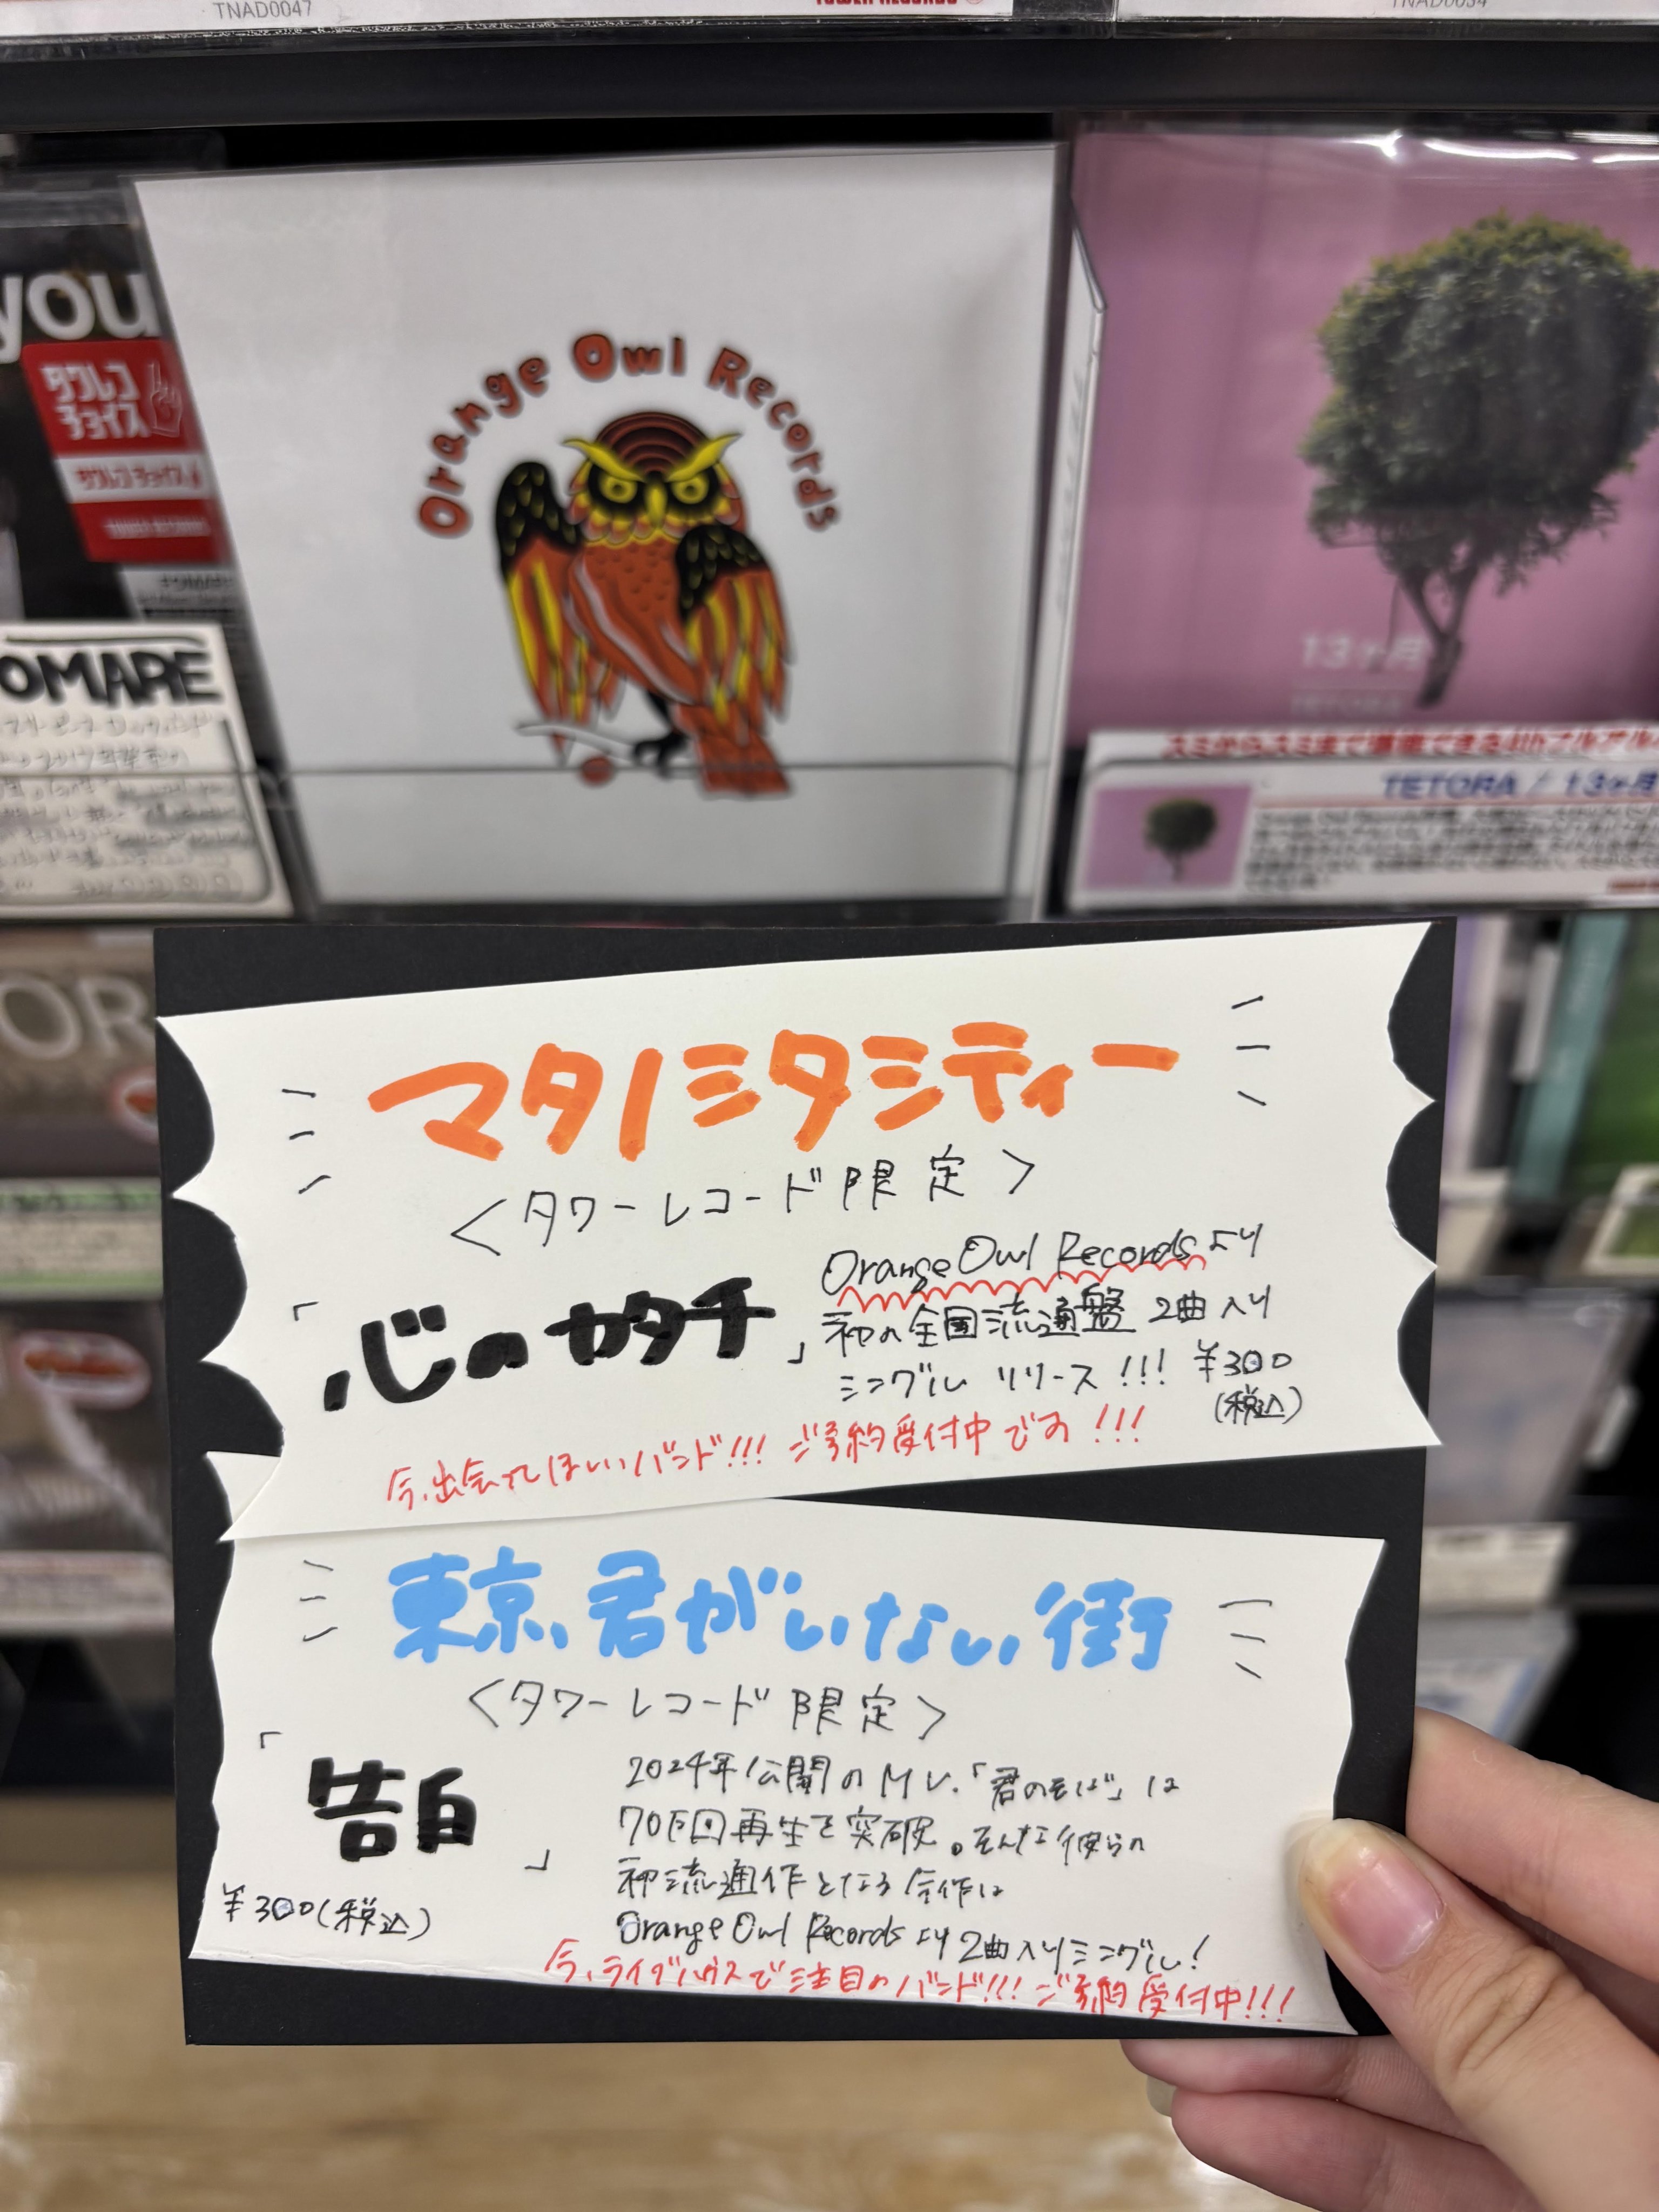 TNAD0047
TOWER RECORDS
TNAD0034
you
タワレコ
チョイス
タワレコチョイス
Orange Owl Records
13ヶ月
TETORA
OMARE
スミからスミまで堪能できる4thフルアル
TETORA / 13ヶ月
OR
マタノミタシティー
<タワーレコード限定>
「心のカタチ」
Orange Owl Recordsより
初の全国流通盤 2曲入り
シングル リリース!!! ¥300
(税込)
今、出会ってほしいバンド!!! ご予約受付中です!!!
東京、君がいない街
<タワーレコード限定>
「告白」
¥300(税込)
2024年公開のMV.「君のそば」は
70万回再生を突破。そんな彼らの
初流通作となる今作は
Orange Owl Recordsより2曲入りシングル!
今、ライブハウスで注目のバンド!!! ご予約受付中!!!